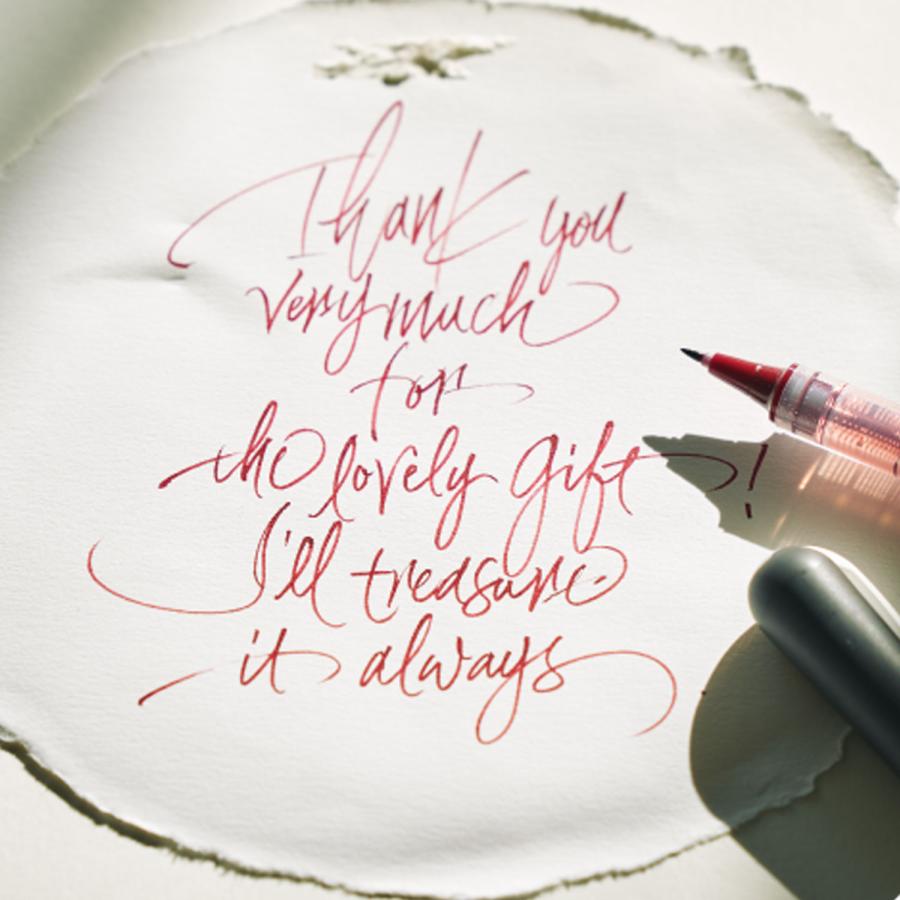 Thank you
very much
for
the lovely gift!
I'll treasure
it always